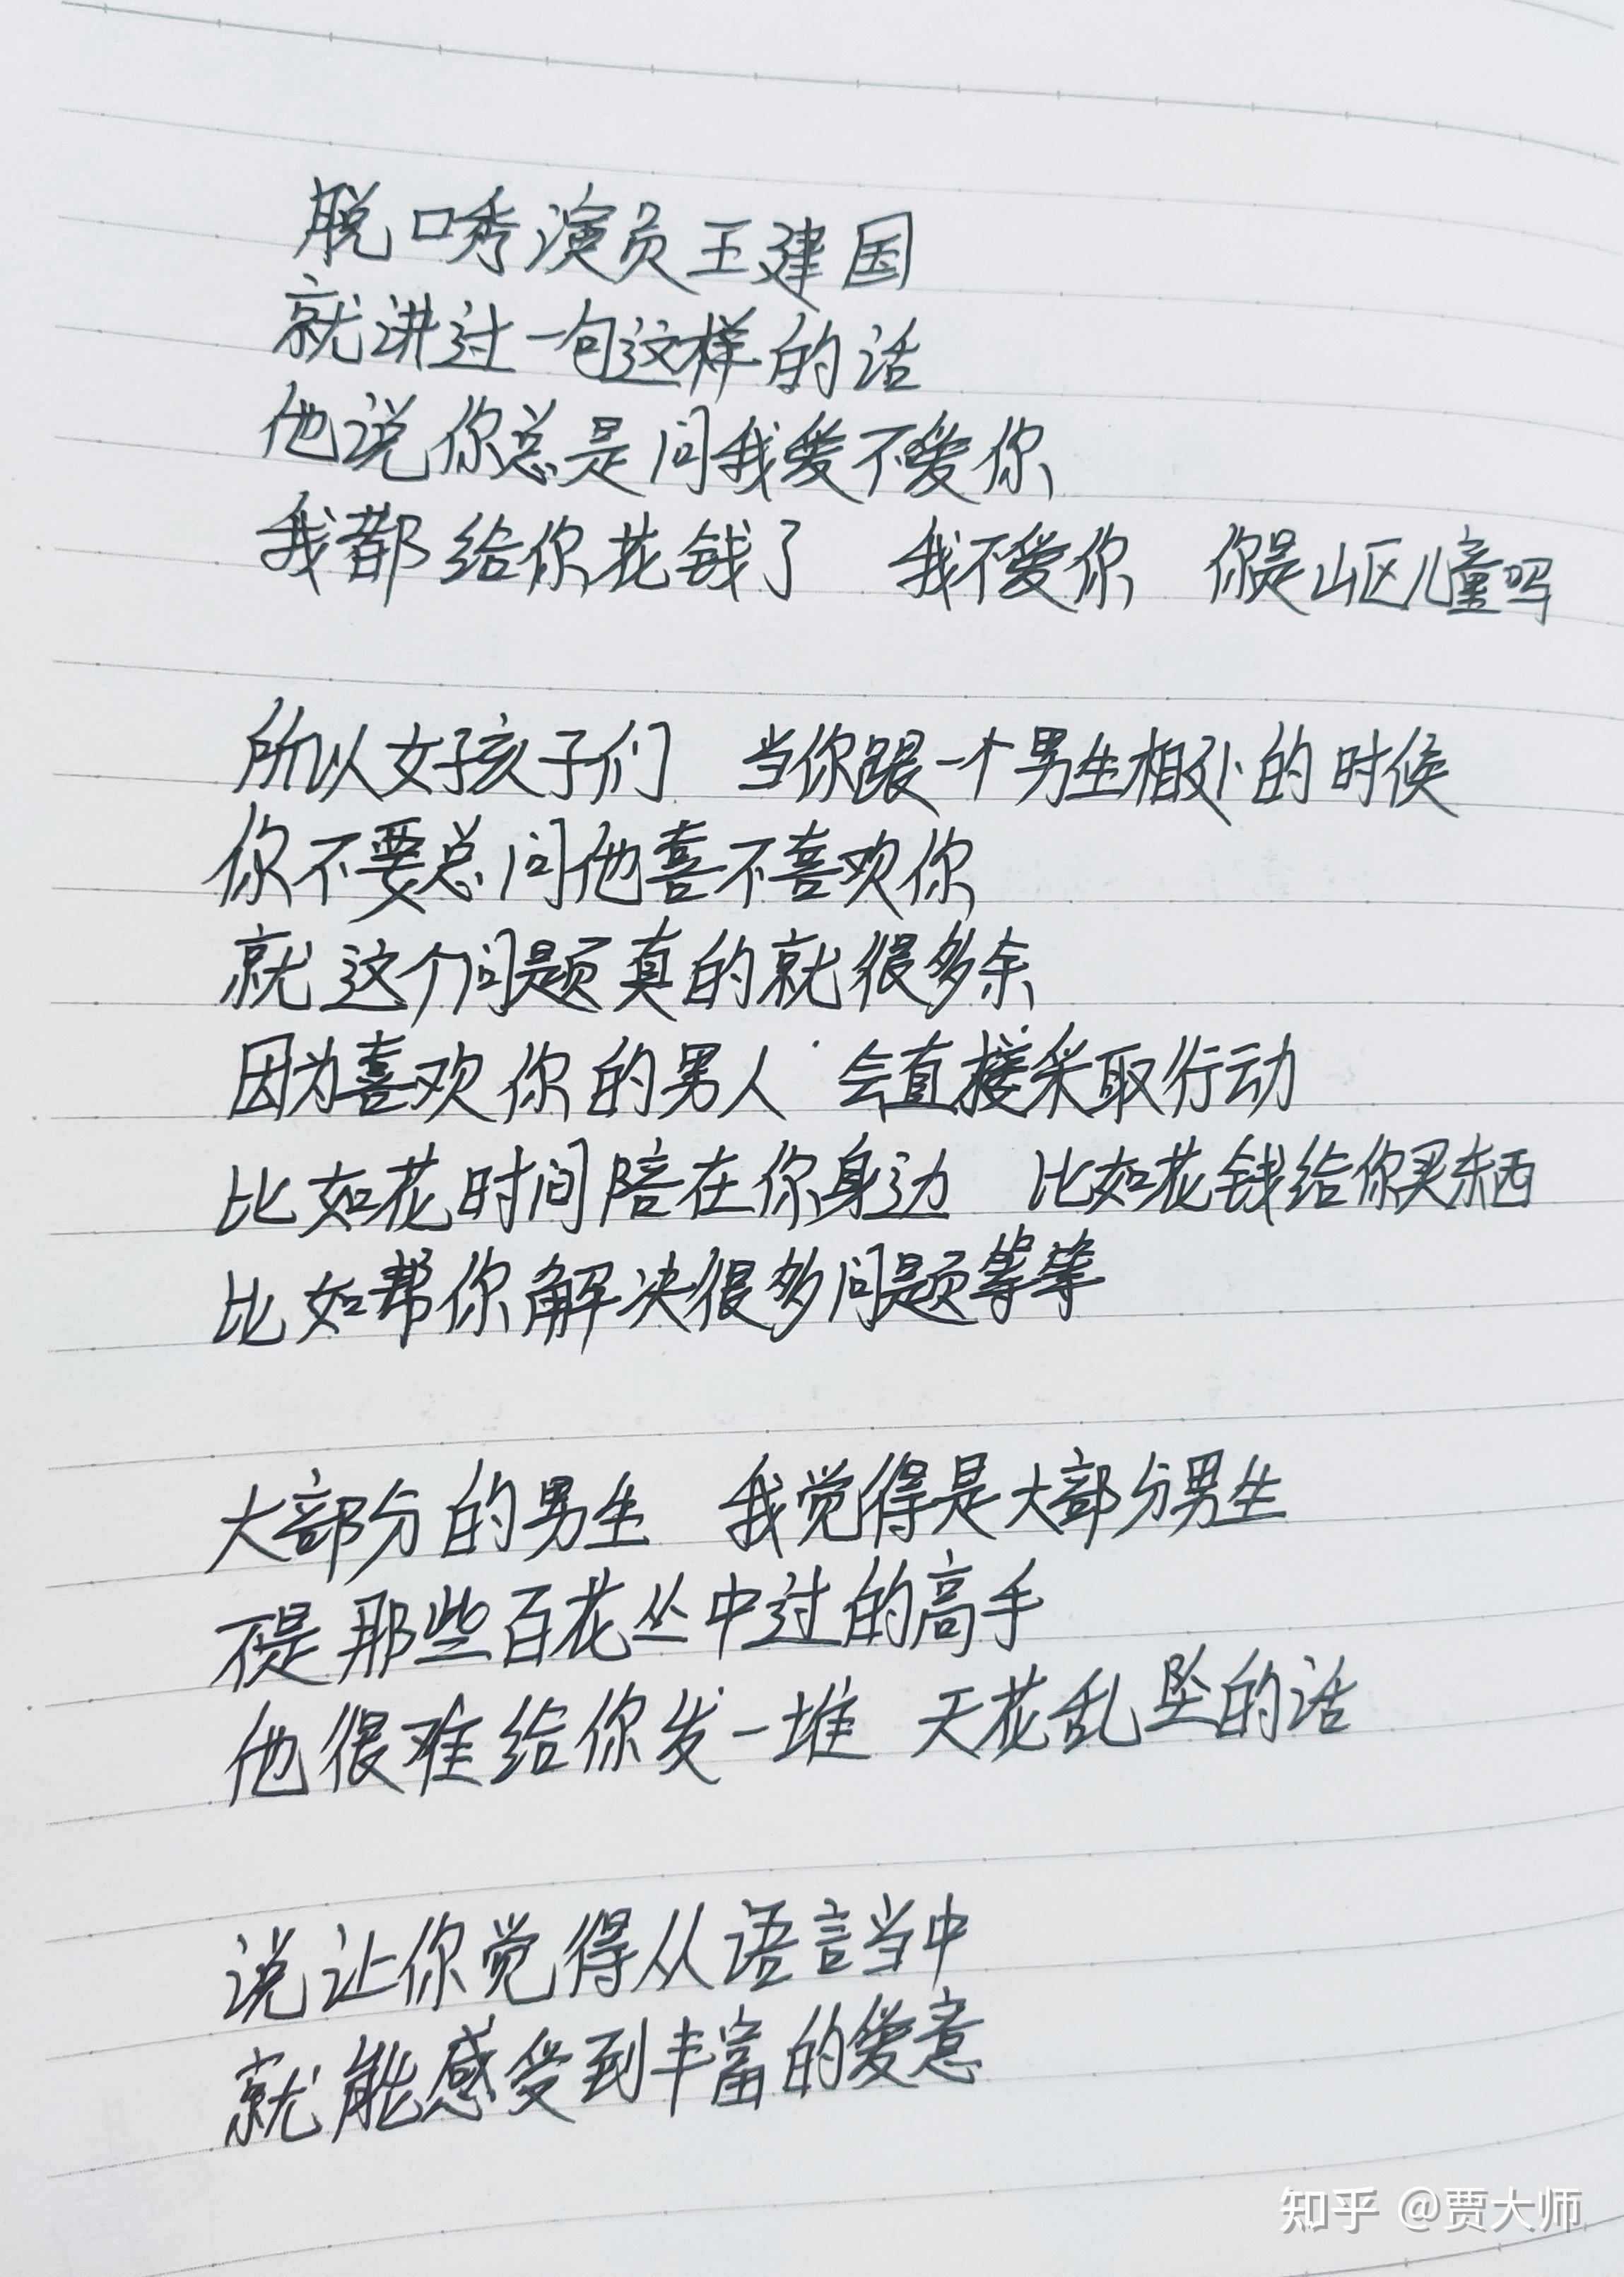 脱口秀演员王建国
就讲过一句这样的话
他说你总是问我爱不爱你
我都给你花钱了 我不爱你 你是山区儿童吗
所以女孩子们 当你跟一个男生相处的时候
你不要总问他喜不喜欢你
就这个问题真的就很多余
因为喜欢你的男人 会直接采取行动
比如花时间陪在你身边 比如花钱给你买东西
比如帮你解决很多问题等等
大部分的男生 我觉得是大部分男生
不是那些百花丛中过的高手
他很难给你发一堆 天花乱坠的话
说让你觉得从语言当中
就能感受到丰富的爱意
知乎 @贾大师